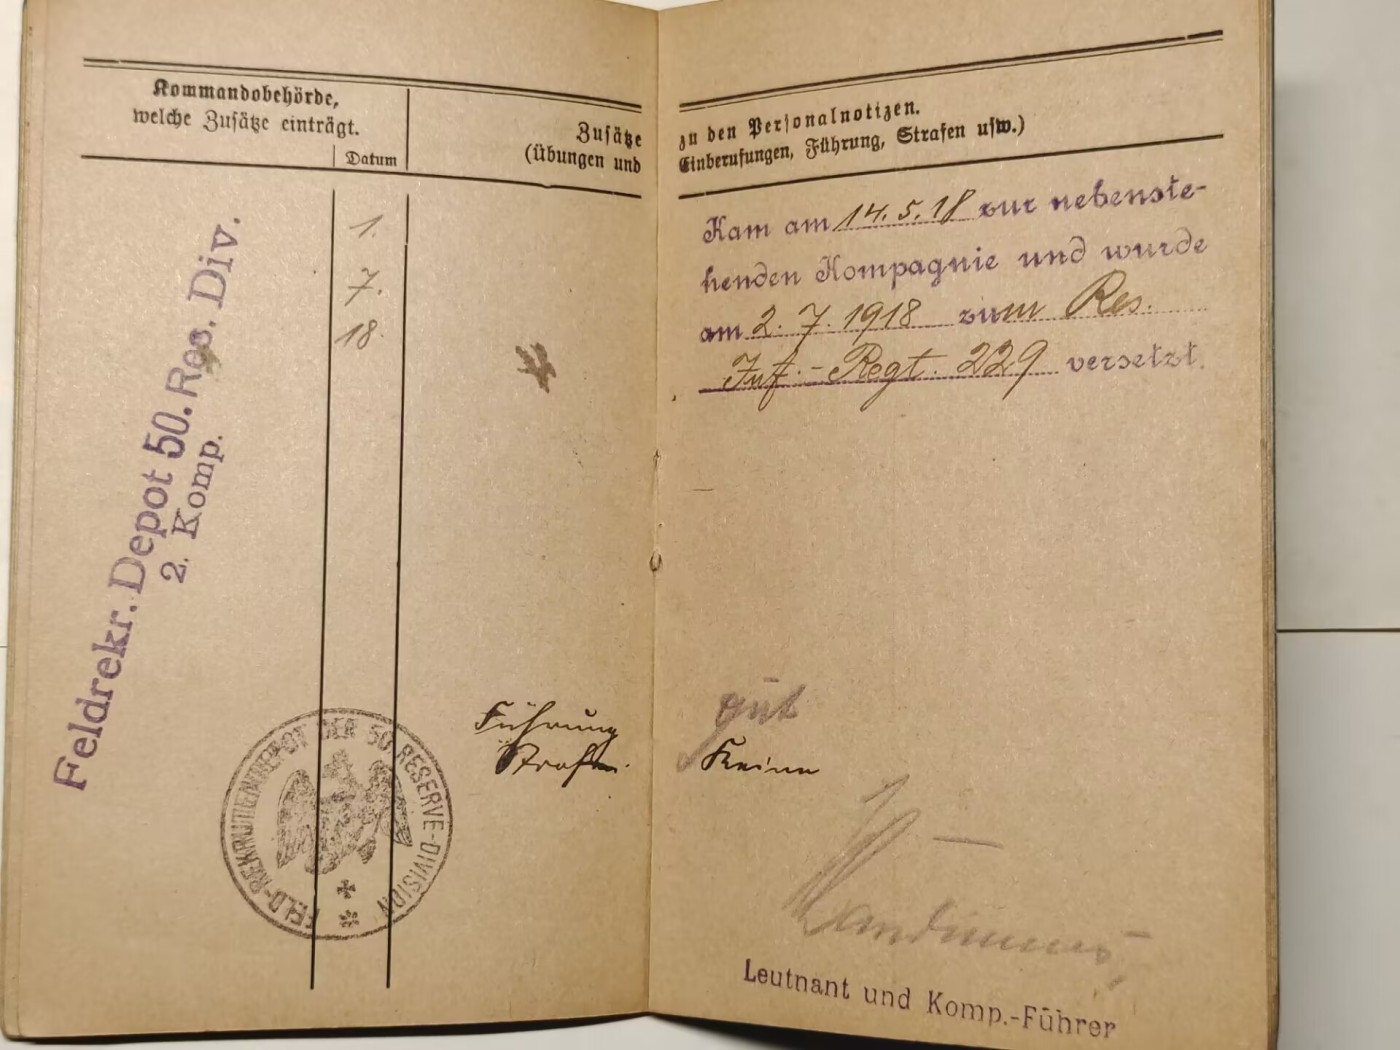 Kommandobehörde,
welche Zusätze einträgt.
Datum
Zusätze
(Übungen und
zu den Personalnotizen.
Einberufungen, Führung, Strafen usw.)
Feldrekr. Depot 50. Res. Div.
2. Komp.
1.
7.
18.
Kam am 14. 5. 18 zur nebenste-
henden Kompagnie und wurde
am 2. 7. 1918 zum Res.
Inf.-Regt. 229 versetzt.
Führung gut
Strafen. Keine
FELD-REKRUTENDEPOT DER 50. RESERVE-DIVISION
Leutnant und Komp.-Führer